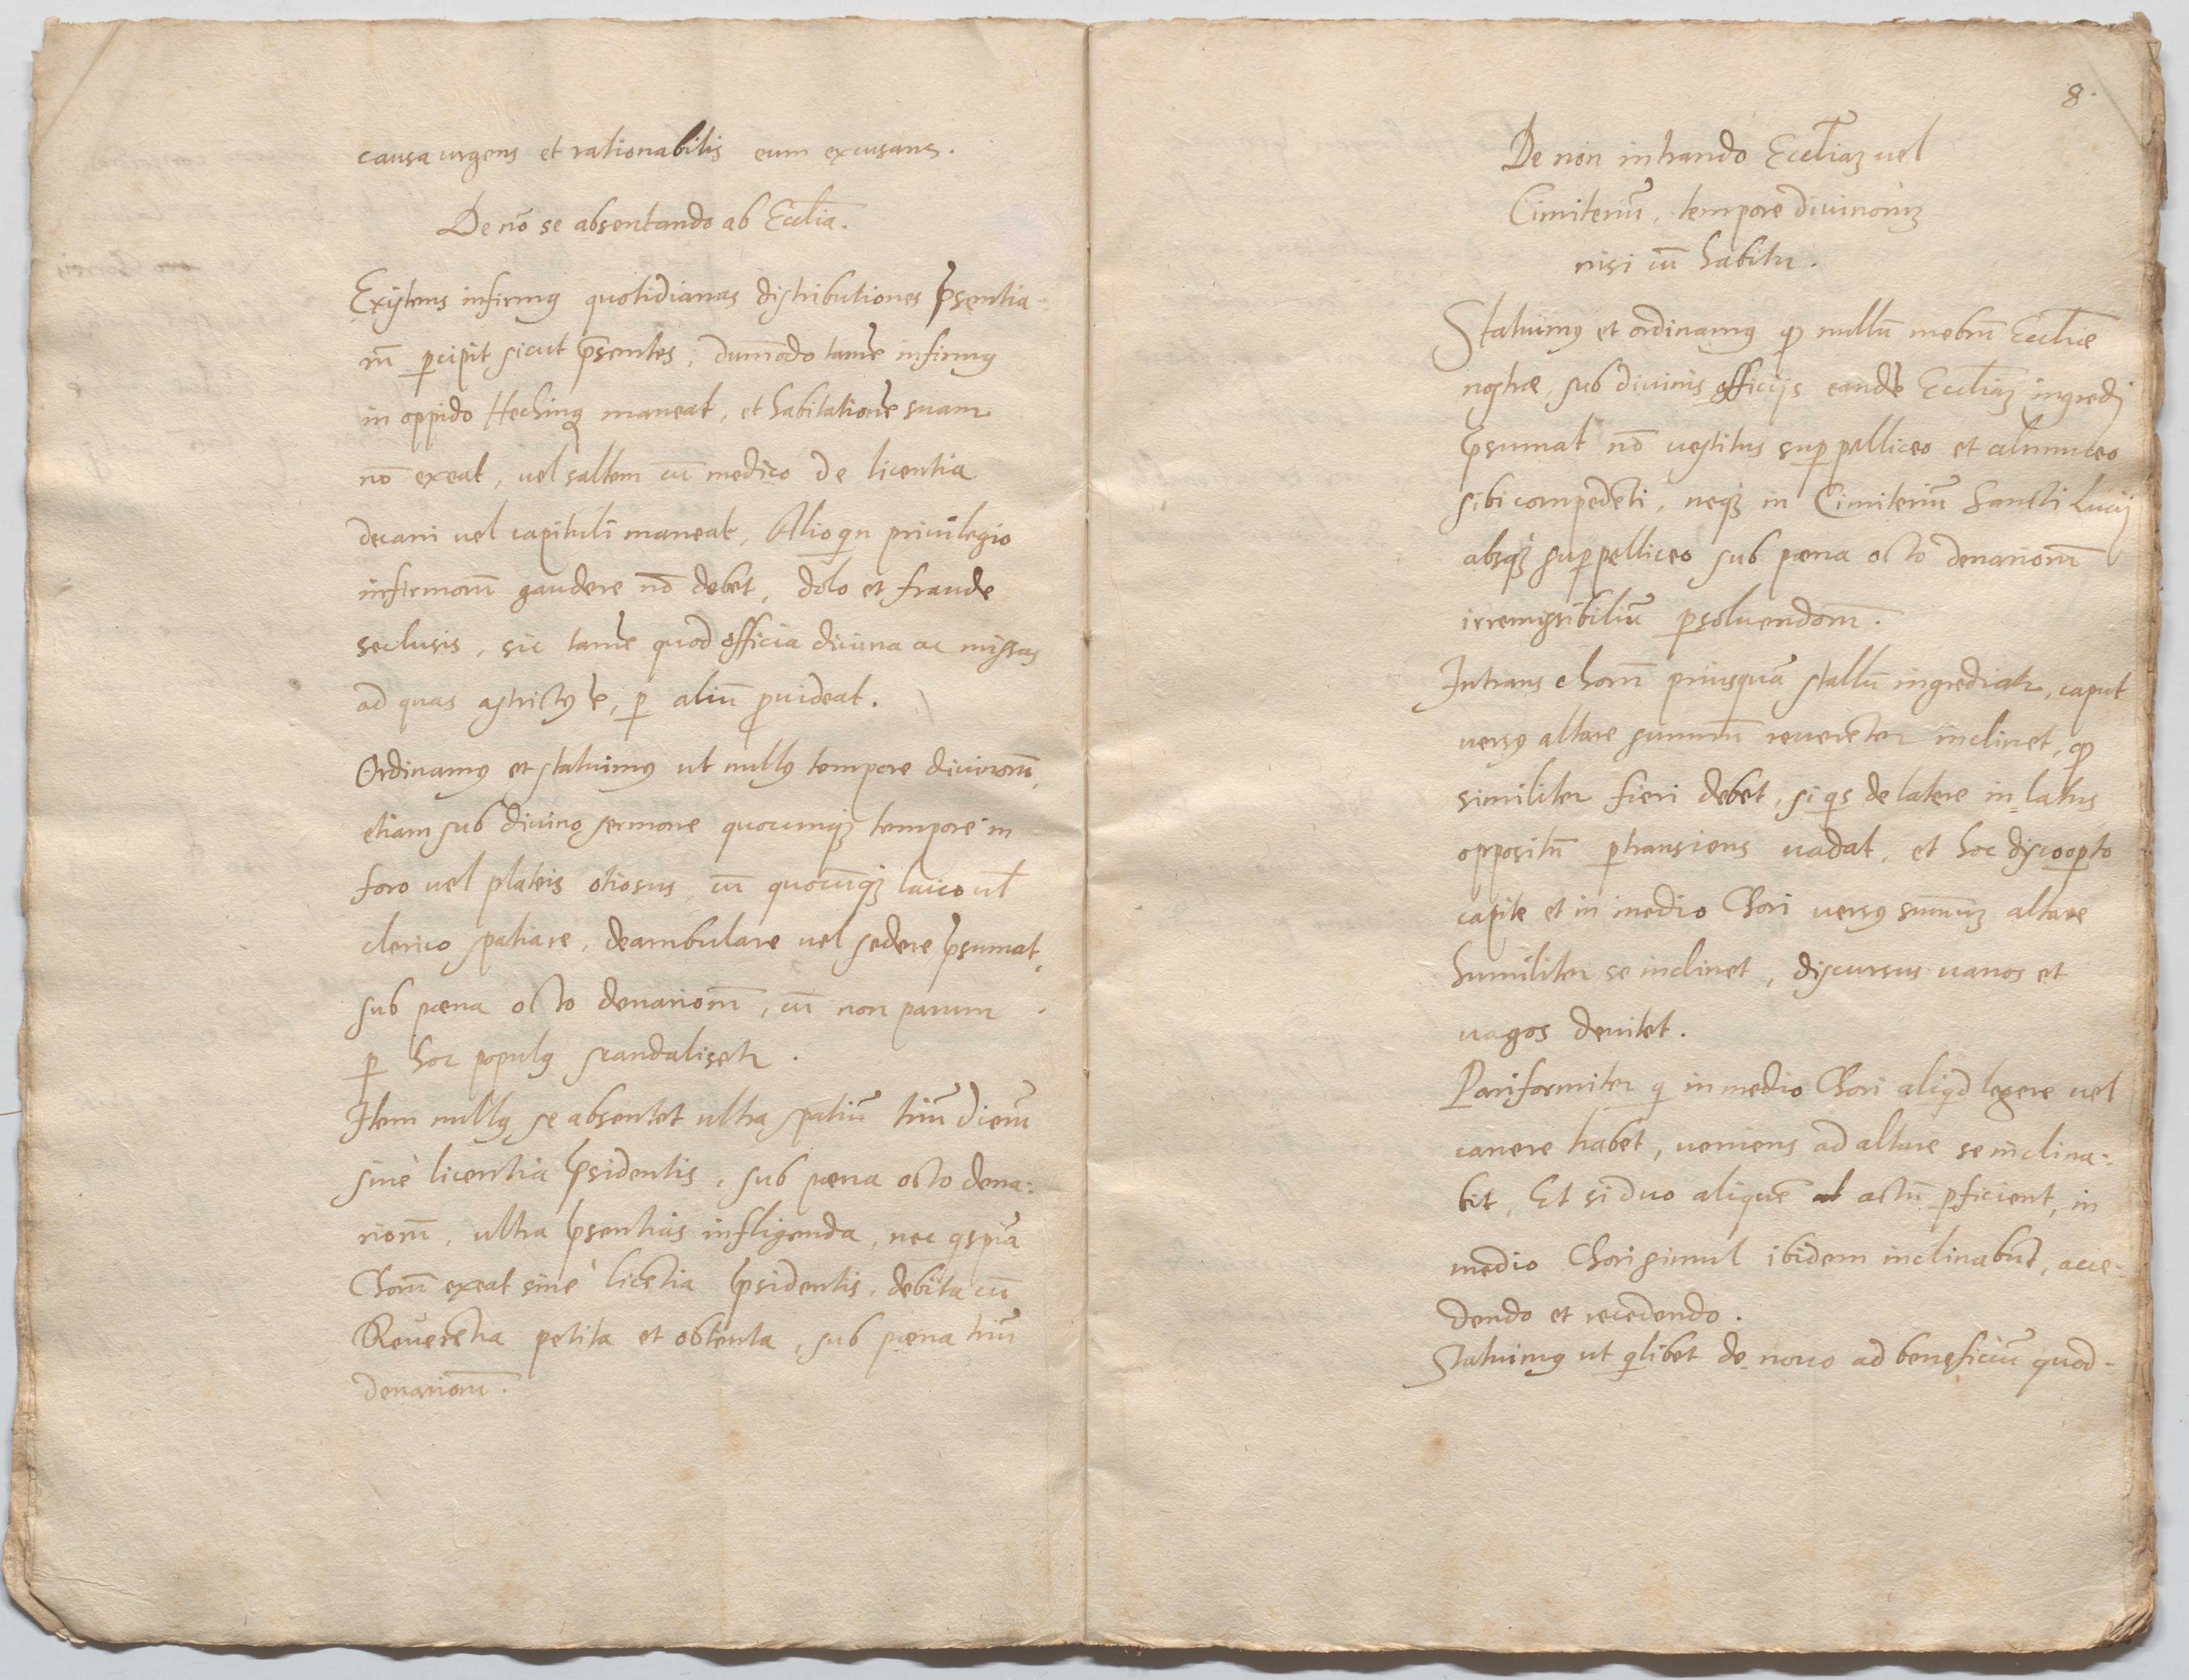 causa urgens et rationabilis eum excusans.
De nō se absentando ab Ecclia.
Existens infirmꝰ quotidianas distributiones p̄sentia-
rū ꝑcipit sicut p̄sentes, dum̄odo tamē infirmꝰ
in oppido Heching maneat, et habitationē suam
nō exeat, uel saltem cū medico de licentia
decani uel capituli maneat, Alioqn priuilegio
infirmorū gaudere nō debet, dolo et fraude
seclusis, sic tamē quod officia diuina ac missas
ad quas astrictꝰ ē, ꝑ aliū ꝓuideat.
Ordinamꝰ et statuimꝰ ut nullꝰ tempore diuinorū,
etiam sub diuino sermone quocumqꝫ tempore in
foro uel plateis otiosus, cū quocūqꝫ laico ul̄
clerico spatiare, deambulare uel sedere p̄sumat,
sub pœna octo denariorū, cū non parum
ꝑ hoc populꝰ scandalisetr.
Item nullꝰ se absentet ultra spatiū triū dierū
sinè licentia p̄sidentis, sub pœna octo dena:
riorū, ultra p̄sentias infligenda, nec qspiā
Chorū exeat sinè licētia p̄sidentis, debita cū
Reuerētia petita et obtenta, sub pœna triū
denariorū.
8.
De non intrando Eccl̄iaꝫ uel
Cimiteriū, tempore diuinorūꝫ
nisi cū habitu.
Statuimꝰ et ordinamꝰ qꝫ nullū mēbrū Eccl̄iæ
nostræ, sub diuinis officijs eandē Eccl̄iaꝫ ingredi
p̄sumat nō uestitus suꝑpelliceo et almuceo
sibi compedēti, neqꝫ in Cimiteriū Sancti Lucij
absqꝫ suꝑpelliceo sub pœna octo denariorū
irremissibiliū ꝑsoluendorū.
Intrans chorū priusquā stallū ingrediatr, caput
uersꝰ altare summū reuerēter inclinet, qꝫ
similiter fieri debet, si qs de latere in latus
oppositū ꝑtransiens uadat, et hoc discooꝑto
capite et in medio Chori uersꝰ sum̄uꝫ altare
humiliter se inclinet, discursus uanos et
uagos deuitet.
Pariformiter q in medio Chori aliqd legere uel
canere habet, ueniens ad altare se inclina:
bit, Et si duo aliquē actū ꝑficient, in
medio Chori simul ibidem inclinabūt, acce:
dendo et recedendo.
Statuimꝰ ut qlibet de nouo ad beneficiū quod-